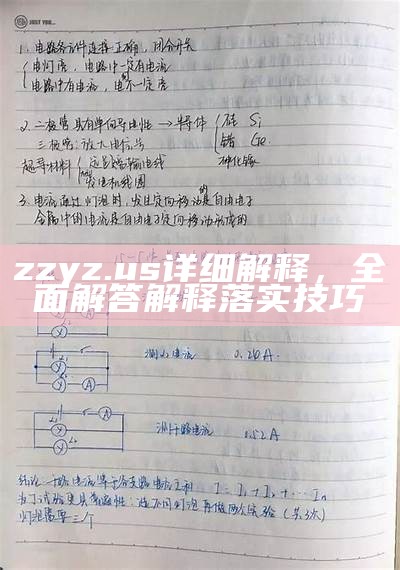 JUST YOU...
1. 电路各元件连接正确，闭合开关
电灯亮，电路中一定有电流
电路中有电流，电灯不一定亮
2. 二极管具有单向导电性 → 半导体 硅 Si
三极管：放大电信号 锗 Ge
超导材料 远距离输电线 砷化镓
发电机线圈
3. 电流通过灯泡时，发生定向移动的是自由电子
金属中的电流是自由电子定向移动形成的
zzyz.us详细解释，全
面解答解释落实技巧
L₁
L₂
A
测L₂电流 0.26A
A
L₁
L₂
测干路电流 0.52A
结论：干路电流等于各支路电流之和 I=I₁+I₂+…In
为了试验更具普遍性：选不同灯泡再做两次实验（共3次）
灯泡需要三个